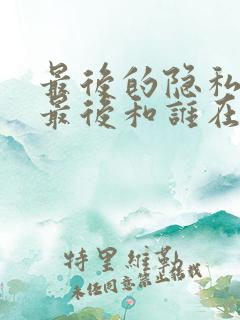 最後的隐私
最後和誰在
特里維勒
未經同意禁止转载